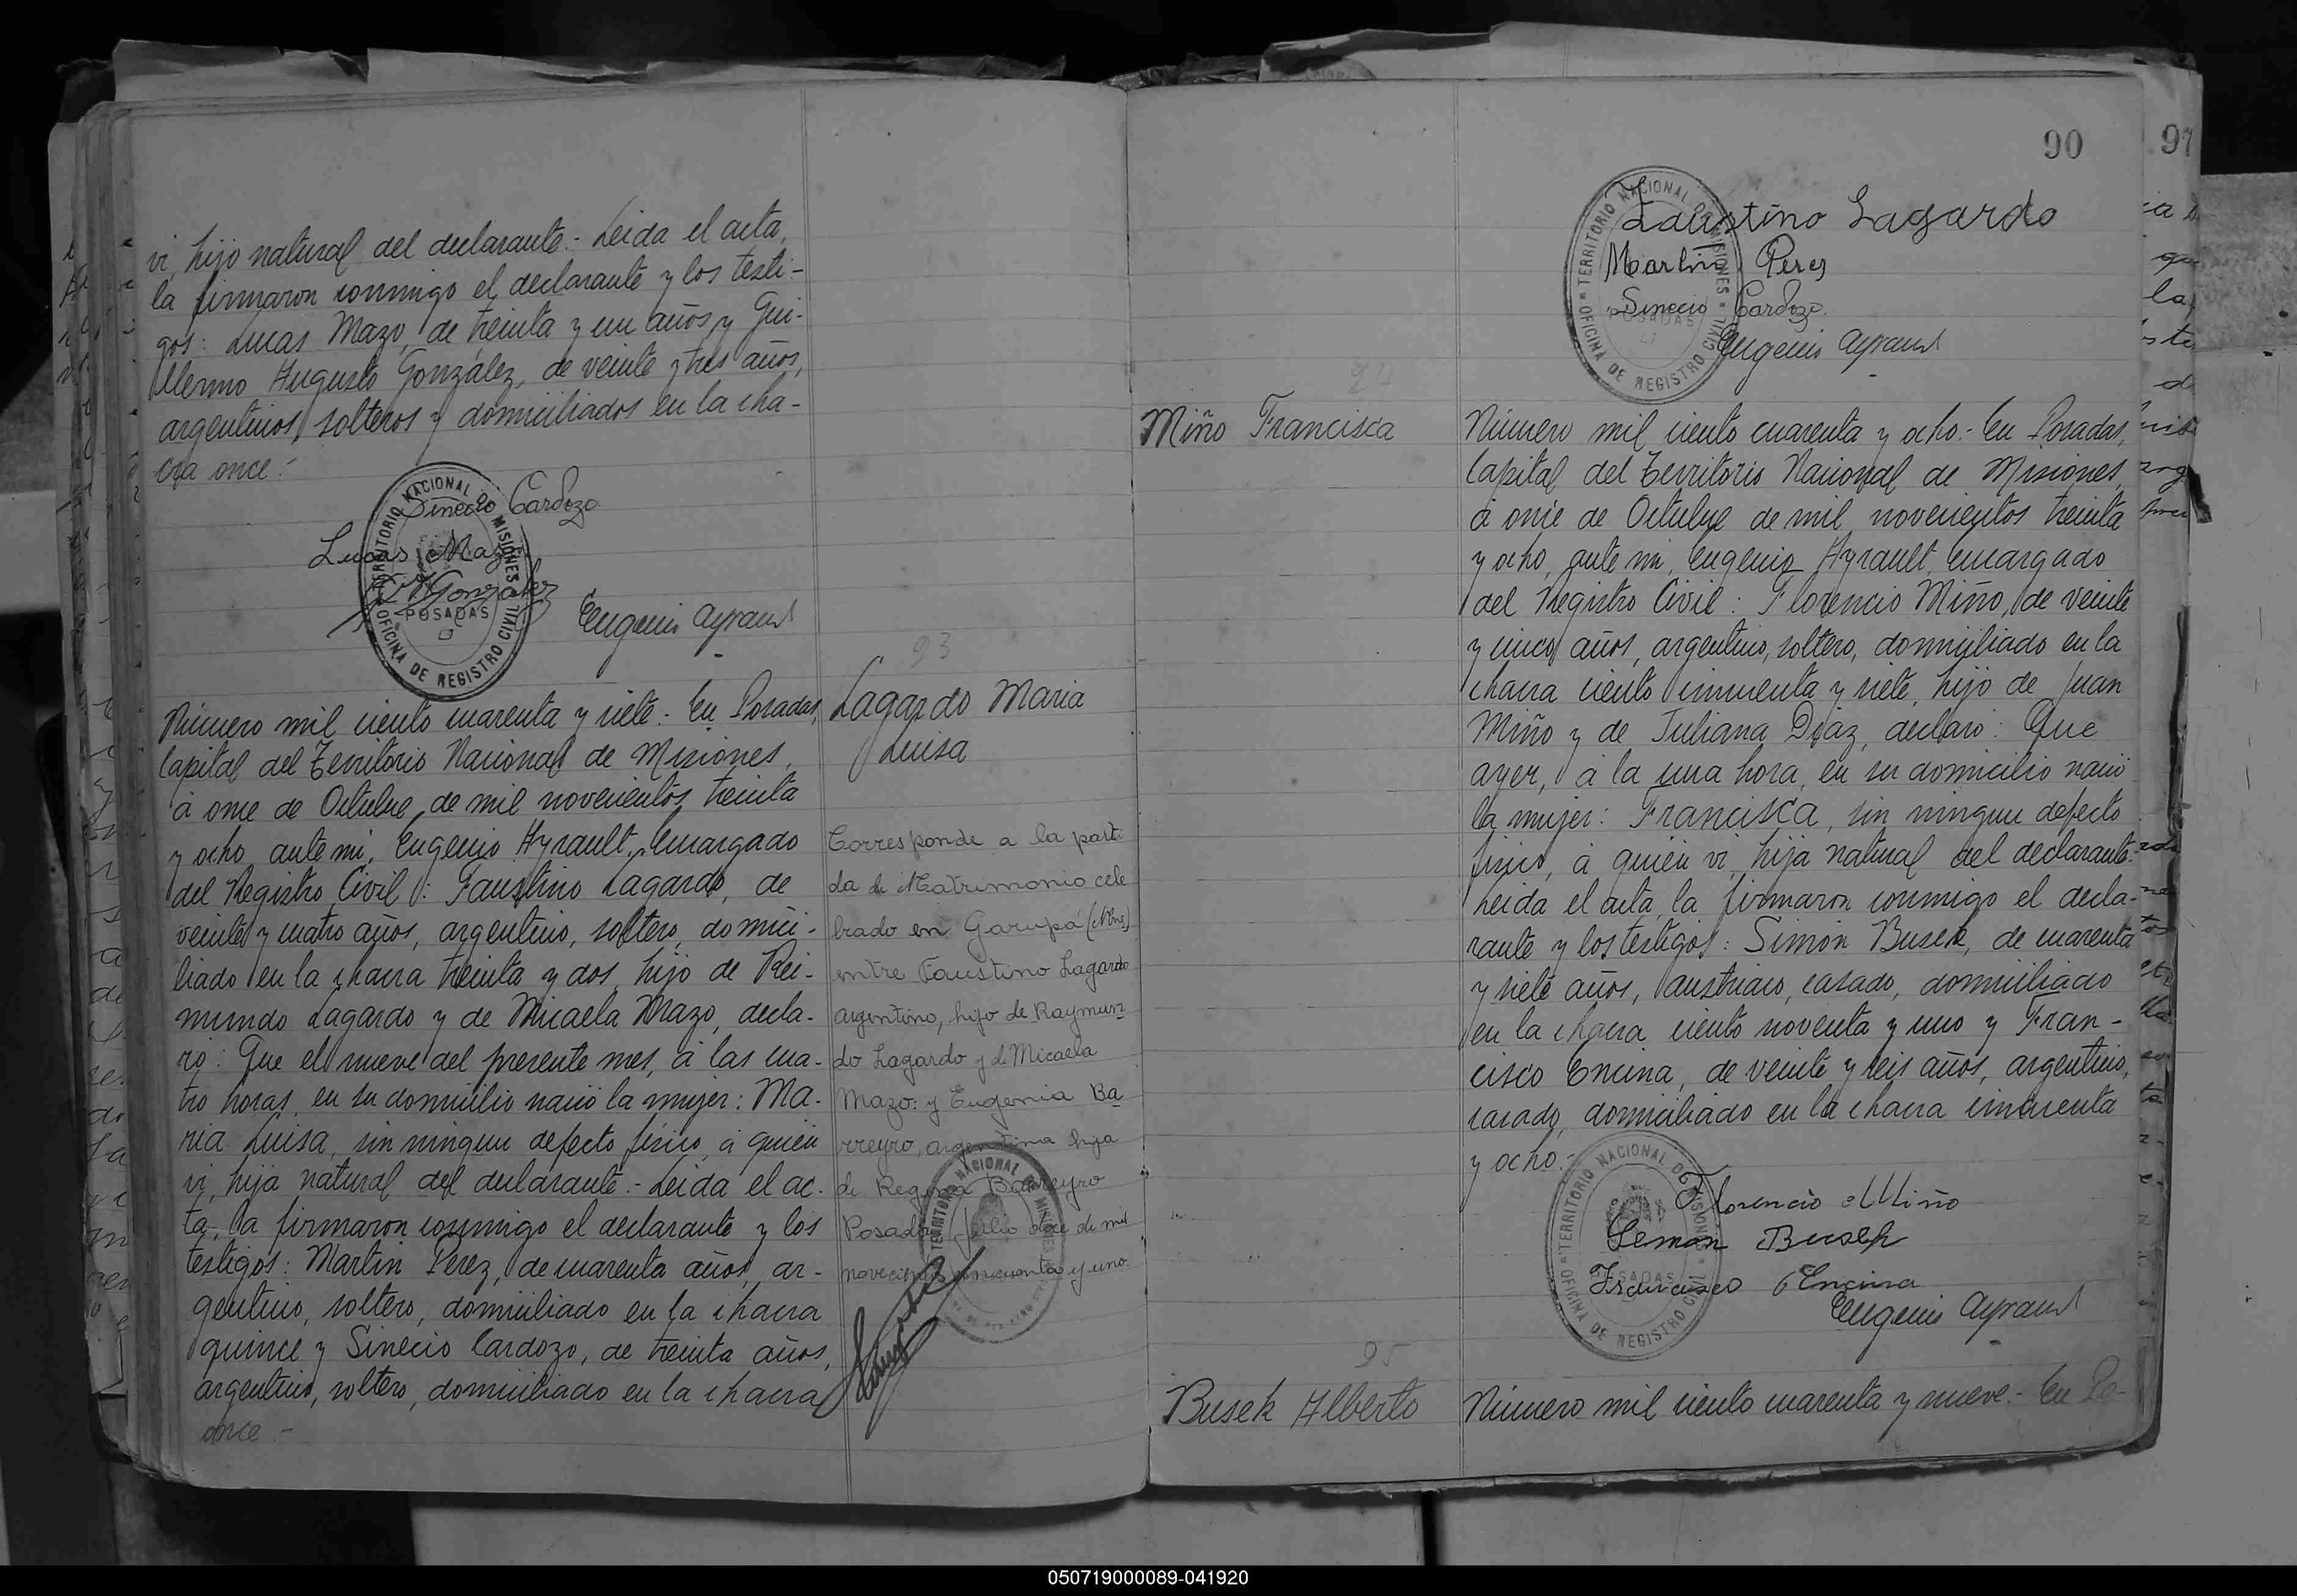 vi, hijo natural del declarante.- Leida el acta,
la firmaron conmigo el declarante y los testi-
gos: Lucas Mazo, de treinta y un años y Gui-
llermo Augusto González, de veinte y tres años,
argentinos, solteros y domiciliados en la cha-
cra once.-
Sinecio Cardozo
Lucas Mazo
González
Eugenio Ayrault
TERRITORIO NACIONAL DE MISIONES
POSADAS
OFICINA DE REGISTRO CIVIL
93
Lagardo Maria
Luisa
Número mil ciento cuarenta y siete.- En Posadas,
Capital del Territorio Nacional de Misiones,
á once de Octubre de mil novecientos treinta
y ocho, ante mi, Eugenio Ayrault, Encargado
del Registro Civil: Faustino Lagardo, de
veinte y cuatro años, argentino, soltero, domici-
liado en la chacra treinta y dos, hijo de Rei-
mundo Lagardo y de Micaela Mazo, decla-
ró: Que el nueve del presente mes, á las cua-
tro horas, en su domicilio nació la mujer: Ma-
ria Luisa, sin ningun defecto fisico, á quien
vi, hija natural del declarante.- Leida el ac-
ta, la firmaron conmigo el declarante y los
testigos: Martin Perez, de cuarenta años, ar-
gentino, soltero, domiciliado en la chacra
quince y Sinecio Cardozo, de treinta años,
argentino, soltero, domiciliado en la chacra
once.-
Corresponde a la parti
da de Matrimonio cele
brado en Garupá (Mnes)
entre Faustino Lagardo
argentino, hijo de Raymun
do Lagardo y de Micaela
Mazo: y Eugenia Ba
rreyro, argentina hija
de Regina Barreyro
Posadas, Julio doce de mil
novecientos cincuenta y uno.
TERRITORIO NACIONAL DE MISIONES
90
97
Faustino Lagardo
Martin Peres
Sinecio Cardozo.
Eugenio Ayrault
TERRITORIO NACIONAL DE MISIONES
POSADAS
OFICINA DE REGISTRO CIVIL
94
Miño Francisca
Número mil ciento cuarenta y ocho.- En Posadas,
Capital del Territorio Nacional de Misiones,
á once de Octubre de mil novecientos treinta
y ocho, ante mi, Eugenio Ayrault, Encargado
del Registro Civil: Florencio Miño, de veinte
y cinco años, argentino, soltero, domiciliado en la
chacra ciento cincuenta y siete, hijo de Juan
Miño y de Juliana Diaz, declaró: Que
ayer, á la una hora, en su domicilio nació
la mujer: Francisca, sin ningun defecto
fisico, á quien vi, hija natural del declarante.-
Leida el acta, la firmaron conmigo el decla-
rante y los testigos: Simón Busek, de cuarenta
y siete años, austriaco, casado, domiciliado
en la chacra ciento noventa y uno y Fran-
cisco Encina, de veinte y seis años, argentino,
casado, domiciliado en la chacra cincuenta
y ocho.-
Florencio Miño
Seman Busek
Francisco Encina
Eugenio Ayrault
TERRITORIO NACIONAL DE MISIONES
POSADAS
OFICINA DE REGISTRO CIVIL
95
Busek Alberto
Número mil ciento cuarenta y nueve.- En Po-
050719000089-041920